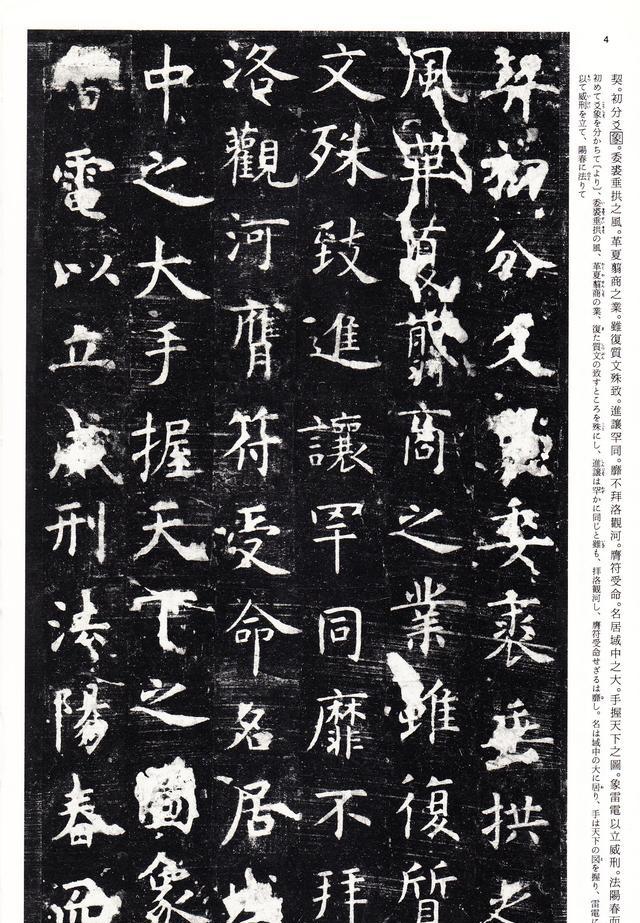 4
契。初分爻象。委裘垂拱之風。革夏翦商之業。雖復質文殊致。進讓罕同。靡不拜洛觀河。膺符受命。名居域中之大。手握天下之圖。象雷電以立威刑。法陽春而
初めて爻象を分かちて〔より〕、委裘垂拱の風、革夏翦商の業、復た質文の致すところを殊にし、進讓は罕かに同じと雖も、拝洛観河し、膺符受命せざるは靡し。名は域中の大に居り、手は天下の図を握り、雷電に
以て威刑を立て、陽春に法りて
契初分爻象委裘垂拱之
風革夏翦商之業雖復質
文殊致進讓罕同靡不拜
洛觀河膺符受命名居域
中之大手握天下之圖象
雷電以立威刑法陽春而